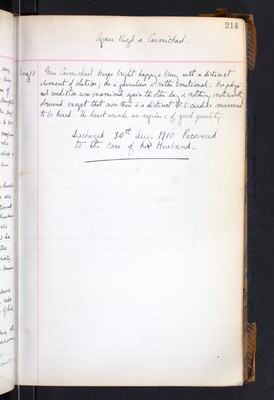 214
Agnes Boyd or Carmichael.
Aug 10 Mrs Carmichael keeps bright happy & busy, with a distinct
element of elation; she is garrulous & rather emotional. Her physi-
cal condition was examined again the other day & nothing noteworthy
found except that now there is a distinct V.S. cardiac murmur
to be heard. The heart sounds are regular & of good quality
Discharged 30th Aug. 1910 Recovered
to the care of her Husband.